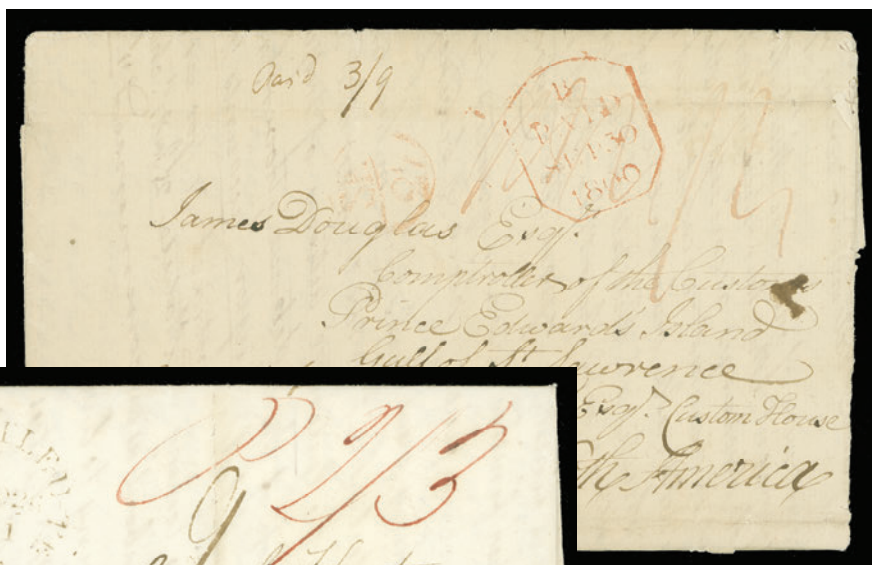 Paid 3/9
B
PAID
SEP 30
1800
James Douglas Esqr.
Comptroller of the Customs
Prince Edward's Island
Gulf of St. Lawrence
Esqr. Custom House
America
P 2/3
9